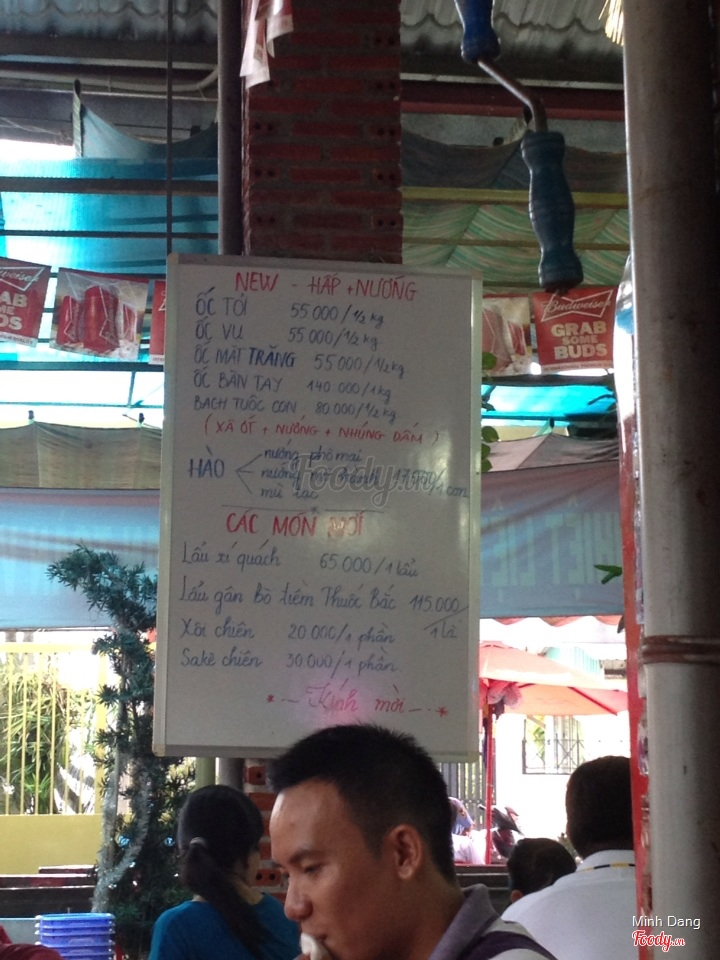 NEW - HẤP + NƯỚNG
ỐC TỎI 55.000/½ kg
ỐC VÚ 55.000/½ kg
ỐC MẶT TRĂNG 55.000/½ kg
ỐC BÀN TAY 140.000/1kg
BẠCH TUỘC CON 80.000/½ kg
(XÃ ỚT + NƯỚNG + NHÚNG DẤM)
nướng phô mai
HÀO nướng 1 con
mù tạc
CÁC MÓN MỚI
Lẩu xí quách 65.000/1 lẩu
Lẩu gân bò tiềm Thuốc Bắc 115.000/
Xôi chiên 20.000/1 phần
Sakê chiên 30.000/1 phần
* - Kính mời - *
Budweiser
GRAB
SOME
BUDS
Budweiser
AB
ME
DS
Foody.vn
Minh Dang
Foody.vn